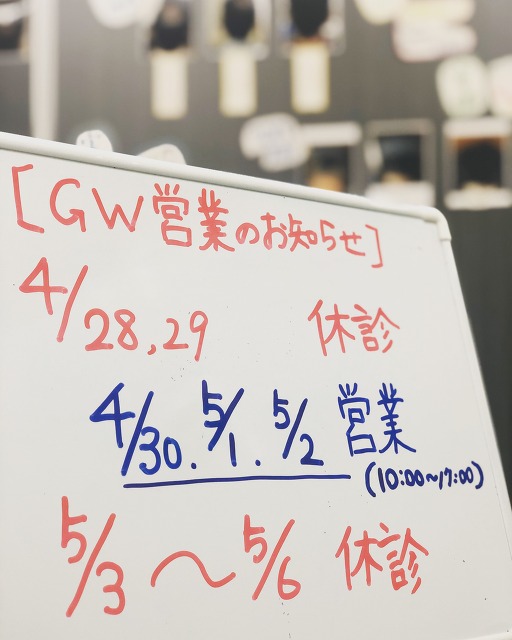 [GW営業のお知らせ]
4/28,29 休診
4/30. 5/1. 5/2 営業
(10:00~17:00)
5/3 〜 5/6 休診